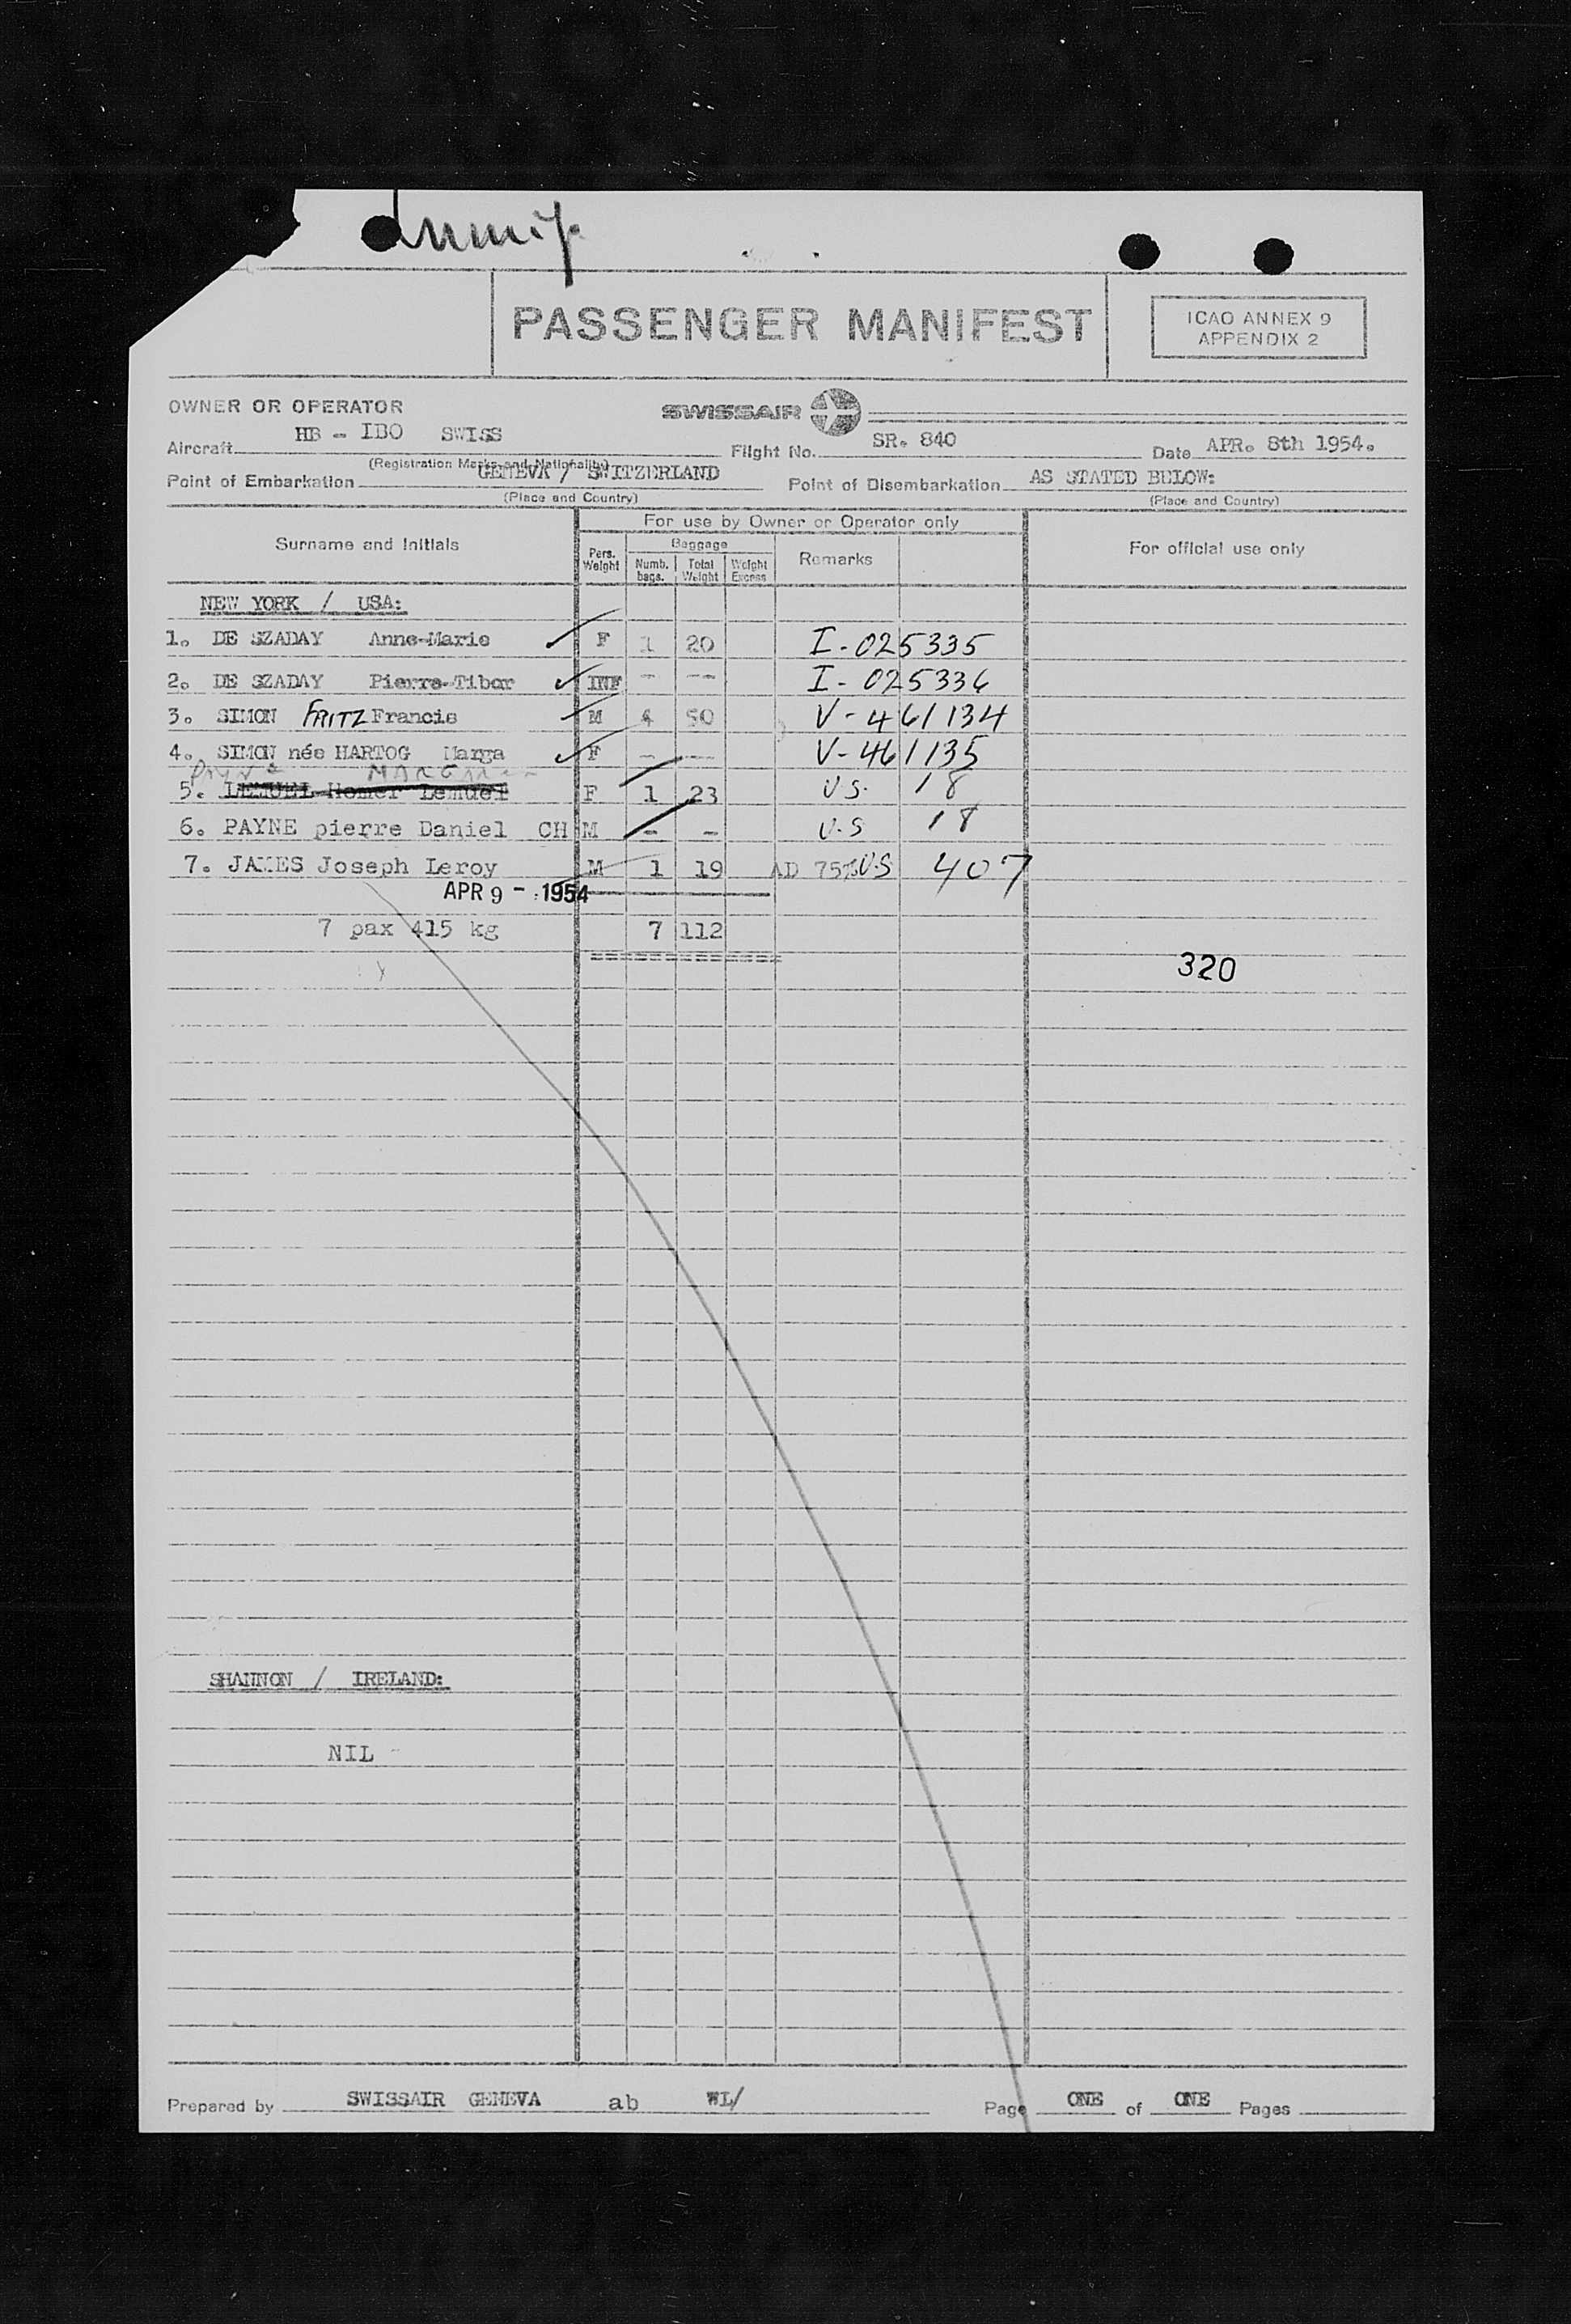 PASSENGER MANIFEST
ICAO ANNEX 9
APPENDIX 2
OWNER OR OPERATOR
SWISSAIR
Aircraft HB - IBO SWISS Flight No. SR. 840 Date APR. 8th 1954.
(Registration Marks and Nationality)
Point of Embarkation GENEVA / SWITZERLAND Point of Disembarkation AS STATED BELOW:
(Place and Country) (Place and Country)
For use by Owner or Operator only
Surname and Initials Pers. Weight Baggage Numb. bags. Total Weight Weight Excess Remarks For official use only
NEW YORK / USA:
1. DE SZADAY Anne-Marie F 1 20 I-025335
2. DE SZADAY Pierre-Tibor INF - -- I-025336
3. SIMON FRITZ Francis M 4 50 V-461134
4. SIMON née HARTOG Marga F - -- V-461135
5. LEMUEL Homer Lemuel F 1 23 US. 18
6. PAYNE pierre Daniel CH M - - U.S 18
7. JAMES Joseph Leroy M 1 19 AD 75% US 407
APR 9 - 1954
7 pax 415 kg 7 112
320
SHANNON / IRELAND:
NIL -
Prepared by SWISSAIR GENEVA ab WL/ Page ONE of ONE Pages